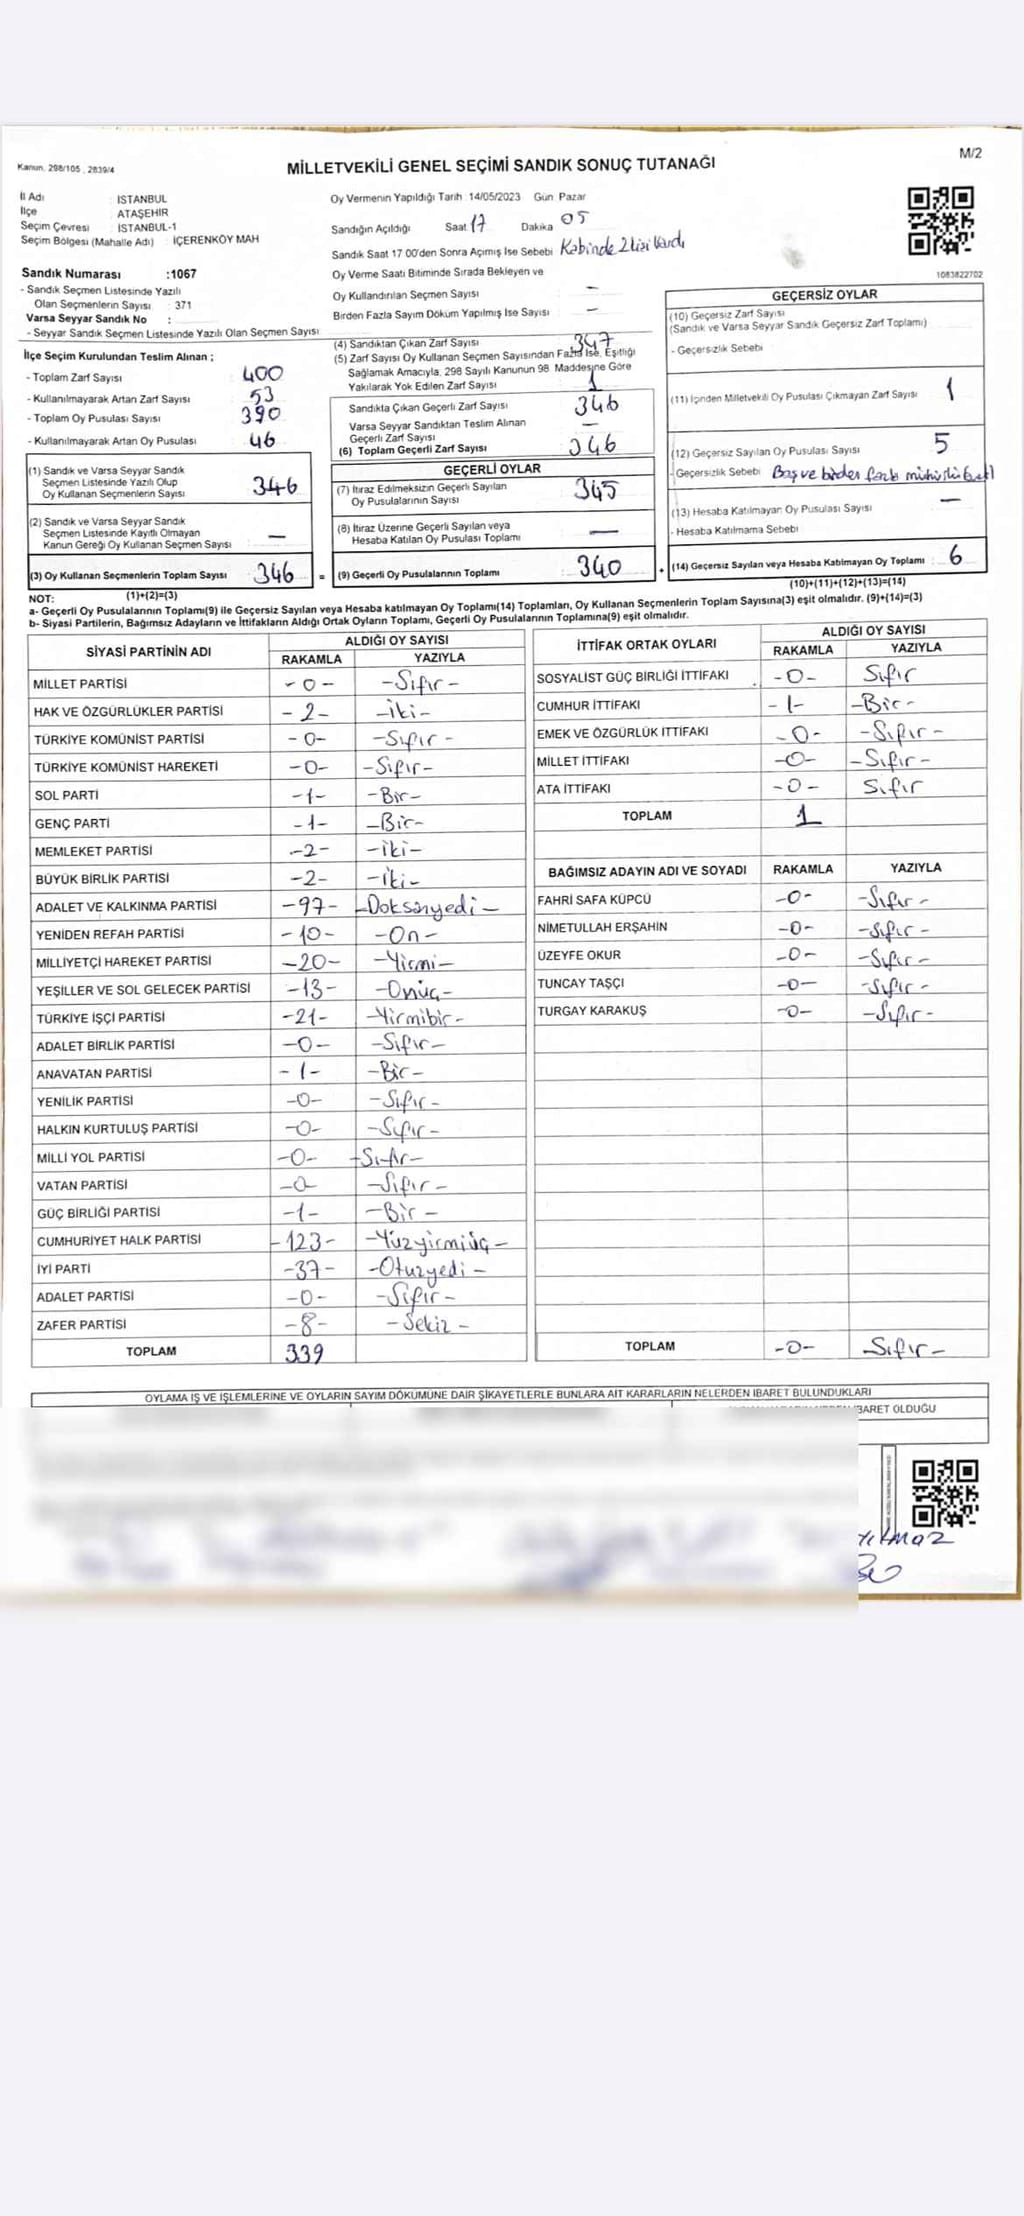 M/2
Kanun, 298/105 , 2839/4
MİLLETVEKİLİ GENEL SEÇİMİ SANDIK SONUÇ TUTANAĞI
İl Adı : İSTANBUL
İlçe : ATAŞEHİR
Seçim Çevresi : İSTANBUL-1
Seçim Bölgesi (Mahalle Adı) : İÇERENKÖY MAH
Oy Vermenin Yapıldığı Tarih :14/05/2023 Gün: Pazar
Sandığın Açıldığı Saat 17 Dakika 05
Sandık Saat 17 00'den Sonra Açımış İse Sebebi Kabinde 2 kişi vardı
Sandık Numarası :1067
- Sandık Seçmen Listesinde Yazılı
Olan Seçmenlerin Sayısı : 371
Varsa Seyyar Sandık No :
- Seyyar Sandık Seçmen Listesinde Yazılı Olan Seçmen Sayısı
Oy Verme Saati Bitiminde Sırada Bekleyen ve
Oy Kullandırılan Seçmen Sayısı –
Birden Fazla Sayım Döküm Yapılmış İse Sayısı –
1083822702
İlçe Seçim Kurulundan Teslim Alınan ;
- Toplam Zarf Sayısı 400
- Kullanılmayarak Artan Zarf Sayısı 53
- Toplam Oy Pusulası Sayısı 390
- Kullanılmayarak Artan Oy Pusulası 46
(1) Sandık ve Varsa Seyyar Sandık
Seçmen Listesinde Yazılı Olup
Oy Kullanan Seçmenlerin Sayısı 346
(2) Sandık ve Varsa Seyyar Sandık
Seçmen Listesinde Kayıtlı Olmayan
Kanun Gereği Oy Kullanan Seçmen Sayısı –
(3) Oy Kullanan Seçmenlerin Toplam Sayısı 346 =
(1)+(2)=(3)
(4) Sandıktan Çıkan Zarf Sayısı 347
(5) Zarf Sayısı Oy Kullanan Seçmen Sayısından Fazla İse, Eşitliği
Sağlamak Amacıyla, 298 Sayılı Kanunun 98 Maddesine Göre
Yakılarak Yok Edilen Zarf Sayısı 1
Sandıkta Çıkan Geçerli Zarf Sayısı 346
Varsa Seyyar Sandıktan Teslim Alınan
Geçerli Zarf Sayısı –
(6) Toplam Geçerli Zarf Sayısı 346
GEÇERLİ OYLAR
(7) İtiraz Edilmeksizin Geçerli Sayılan
Oy Pusulalarının Sayısı 345
(8) İtiraz Üzerine Geçerli Sayılan veya
Hesaba Katılan Oy Pusulası Toplamı –
(9) Geçerli Oy Pusulalarının Toplamı 340 +
GEÇERSİZ OYLAR
(10) Geçersiz Zarf Sayısı
(Sandık ve Varsa Seyyar Sandık Geçersiz Zarf Toplamı)
- Geçersizlik Sebebi
(11) İçinden Milletvekili Oy Pusulası Çıkmayan Zarf Sayısı 1
(12) Geçersiz Sayılan Oy Pusulası Sayısı 5
- Geçersizlik Sebebi Boş ve birden fazla mühürlü
(13) Hesaba Katılmayan Oy Pusulası Sayısı –
- Hesaba Katılmama Sebebi
(14) Geçersiz Sayılan veya Hesaba Katılmayan Oy Toplamı : 6
(10)+(11)+(12)+(13)=(14)
NOT:
a- Geçerli Oy Pusulalarının Toplamı(9) ile Geçersiz Sayılan veya Hesaba katılmayan Oy Toplamı(14) Toplamları, Oy Kullanan Seçmenlerin Toplam Sayısına(3) eşit olmalıdır. (9)+(14)=(3)
b- Siyasi Partilerin, Bağımsız Adayların ve İttifakların Aldığı Ortak Oyların Toplamı, Geçerli Oy Pusulalarının Toplamına(9) eşit olmalıdır.
SİYASİ PARTİNİN ADI ALDIĞI OY SAYISI
RAKAMLA YAZIYLA
MİLLET PARTİSİ -0- -Sıfır-
HAK VE ÖZGÜRLÜKLER PARTİSİ -2- -iki-
TÜRKİYE KOMÜNİST PARTİSİ -0- -Sıfır-
TÜRKİYE KOMÜNİST HAREKETİ -0- -Sıfır-
SOL PARTİ -1- -Bir-
GENÇ PARTİ -1- -Bir-
MEMLEKET PARTİSİ -2- -iki-
BÜYÜK BİRLİK PARTİSİ -2- -iki-
ADALET VE KALKINMA PARTİSİ -97- -Doksanyedi-
YENİDEN REFAH PARTİSİ -10- -On-
MİLLİYETÇİ HAREKET PARTİSİ -20- -Yirmi-
YEŞİLLER VE SOL GELECEK PARTİSİ -13- -Onüç-
TÜRKİYE İŞÇİ PARTİSİ -21- -Yirmibir-
ADALET BİRLİK PARTİSİ -0- -Sıfır-
ANAVATAN PARTİSİ -1- -Bir-
YENİLİK PARTİSİ -0- -Sıfır-
HALKIN KURTULUŞ PARTİSİ -0- -Sıfır-
MİLLİ YOL PARTİSİ -0- -Sıfır-
VATAN PARTİSİ -0- -Sıfır-
GÜÇ BİRLİĞİ PARTİSİ -1- -Bir-
CUMHURİYET HALK PARTİSİ -123- -Yüzyirmiüç-
İYİ PARTİ -37- -Otuzyedi-
ADALET PARTİSİ -0- -Sıfır-
ZAFER PARTİSİ -8- -Sekiz-
TOPLAM 339
İTTİFAK ORTAK OYLARI ALDIĞI OY SAYISI
RAKAMLA YAZIYLA
SOSYALİST GÜÇ BİRLİĞİ İTTİFAKI -0- Sıfır
CUMHUR İTTİFAKI -1- -Bir-
EMEK VE ÖZGÜRLÜK İTTİFAKI -0- -Sıfır-
MİLLET İTTİFAKI -0- -Sıfır-
ATA İTTİFAKI -0- Sıfır
TOPLAM 1
BAĞIMSIZ ADAYIN ADI VE SOYADI RAKAMLA YAZIYLA
FAHRİ SAFA KÜPCÜ -0- -Sıfır-
NİMETULLAH ERŞAHİN -0- -Sıfır-
ÜZEYFE OKUR -0- -Sıfır-
TUNCAY TAŞÇI -0- -Sıfır-
TURGAY KARAKUŞ -0- -Sıfır-
TOPLAM -0- Sıfır-
OYLAMA İŞ VE İŞLEMLERİNE VE OYLARIN SAYIM DÖKÜMÜNE DAİR ŞİKAYETLERLE BUNLARA AİT KARARLARIN NELERDEN İBARET BULUNDUKLARI
İBARET OLDUĞU